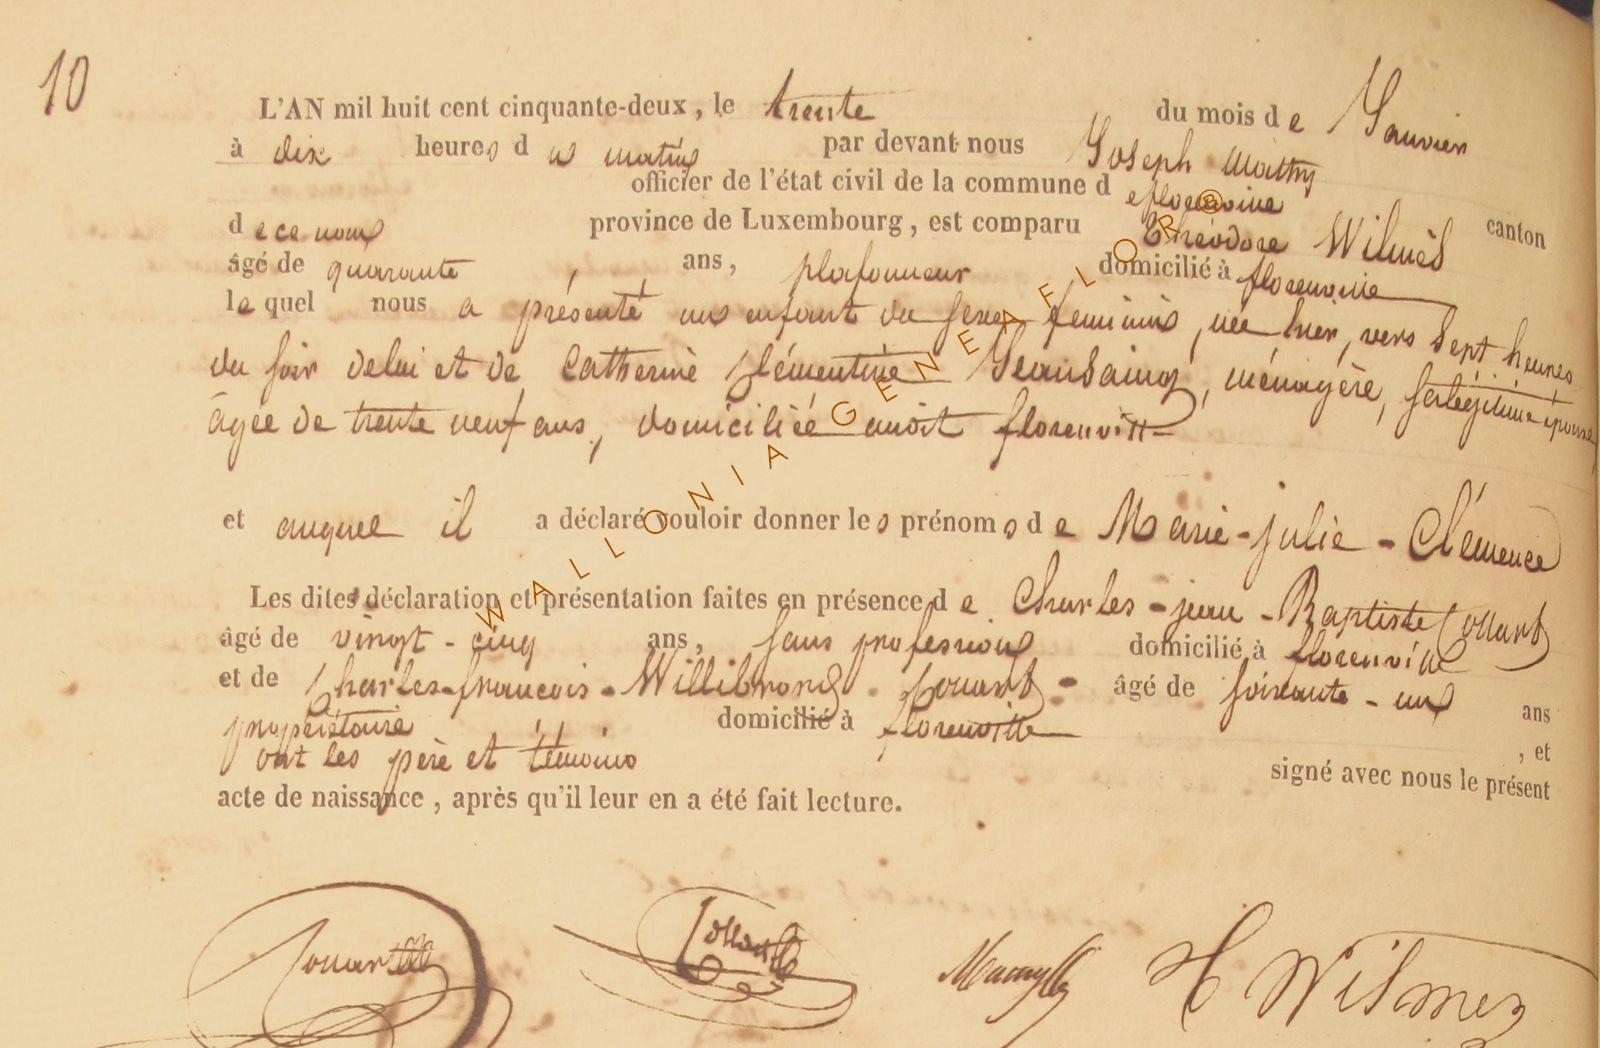 10
L'AN mil huit cent cinquante-deux, le trente du mois de Janvier
à dix heures du matin par devant nous Joseph Mathy
officier de l'état civil de la commune de florenville canton
de ce nom province de Luxembourg, est comparu Théodore Wilmès
âgé de quarante ans, plafonneur domicilié à florenville
le quel nous a présenté un enfant du sexe feminin, née hier, vers sept heures
du soir de lui et de Catherine Clémentine Jeansaing, ménagère, sa légitime épouse,
âgée de trente neuf ans, domiciliée audit florenville
et auquel il a déclaré vouloir donner les prénoms de Marie-julie-Clémence
Les dites déclaration et présentation faites en présence de Charles-jean-Baptiste Collard
âgé de vingt-cinq ans, sans profession domicilié à florenville
et de Charles-francois-Willibrord Jouart - âgé de soixante-un ans
propriétaire domicilié à florenville , et
ont les père et témoins signé avec nous le présent
acte de naissance, après qu'il leur en a été fait lecture.
Jouart Collard Mathy H Wilmes
WALLONIA GENEAFLOR®